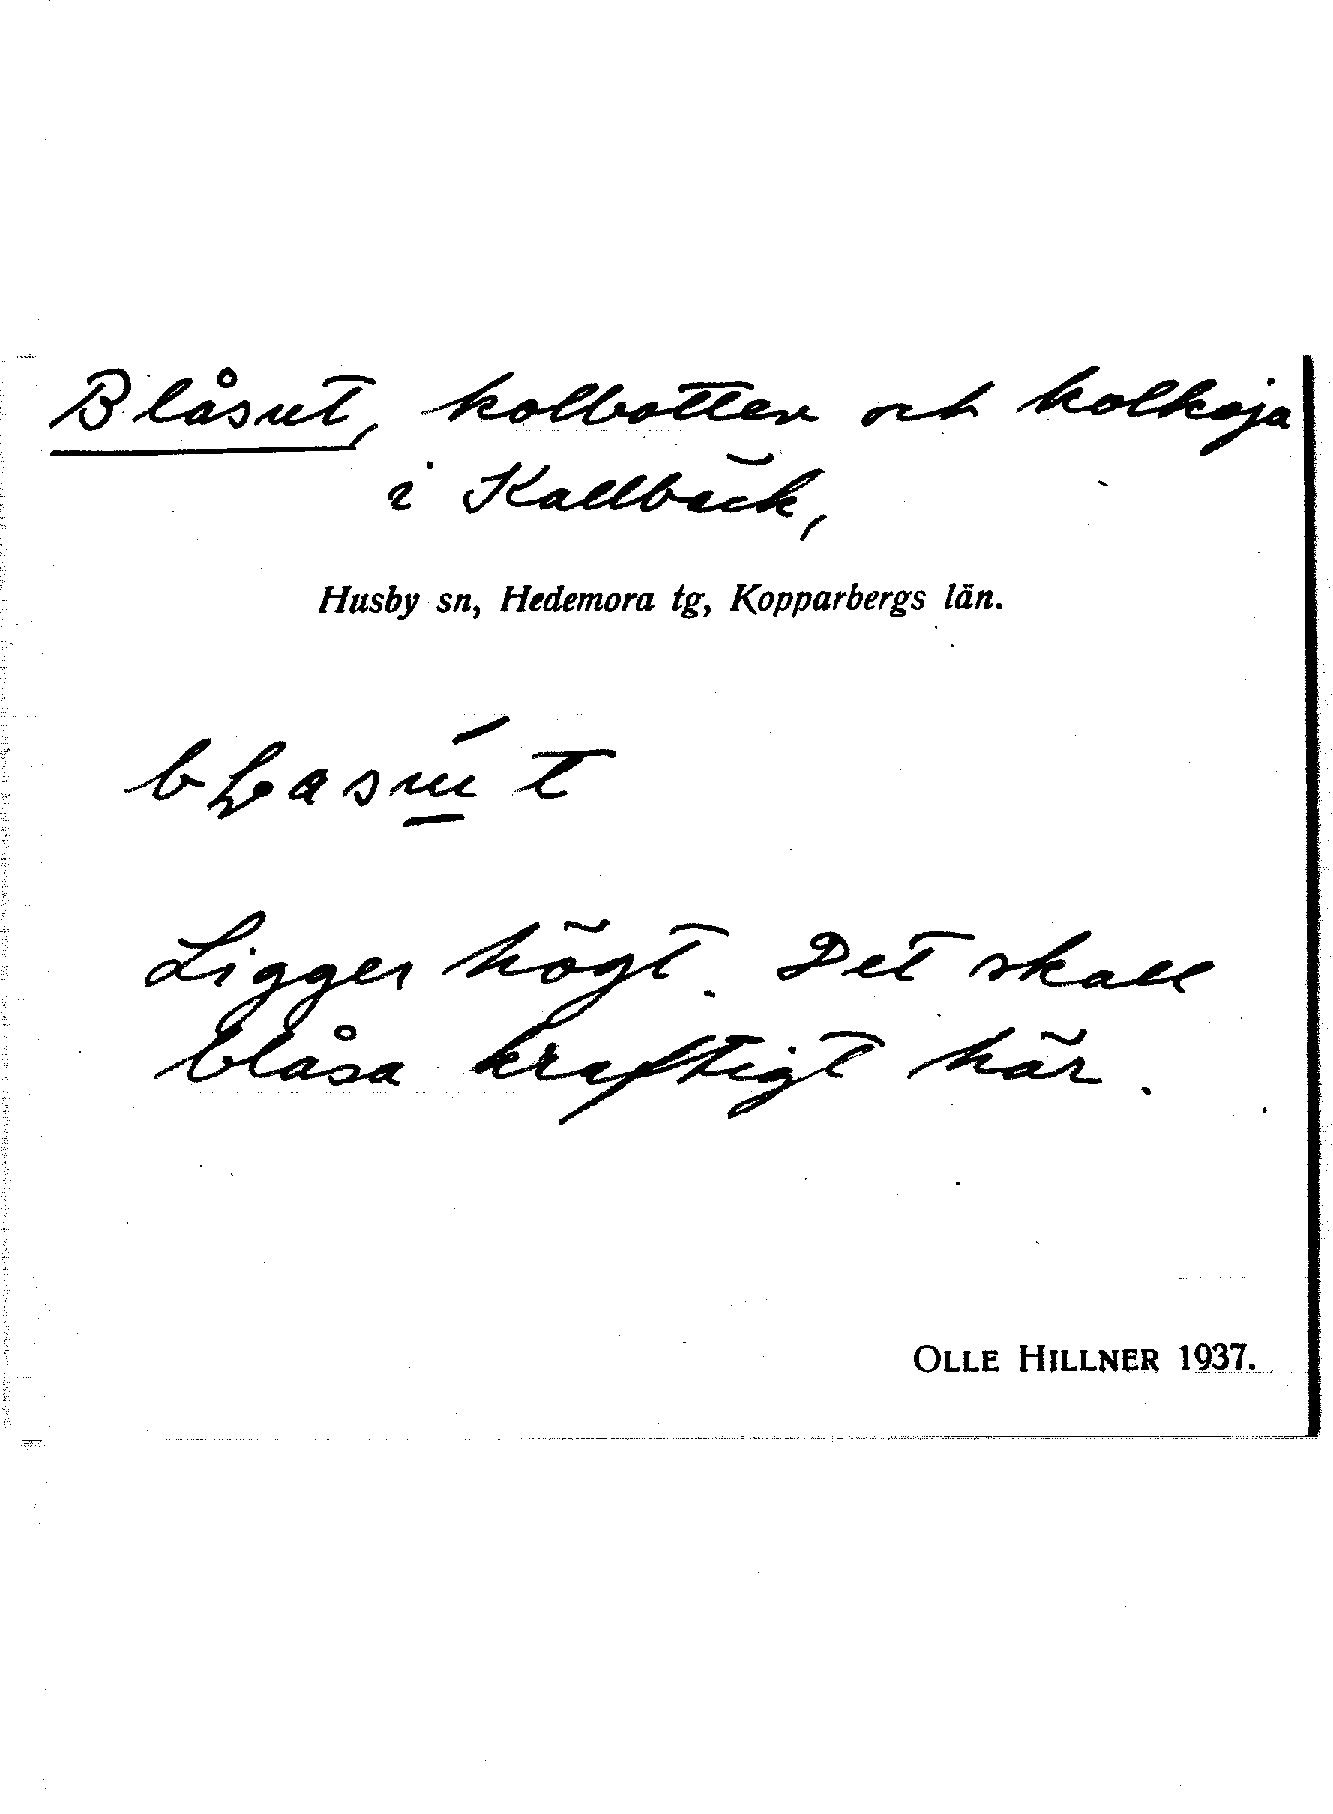 Blåsut, kolbotten och kolkoja
i Kallbäck,
Husby sn, Hedemora tg, Kopparbergs län.
Ligger högt. Det skall
blåsa kraftigt här.
OLLE HILLNER 1937.